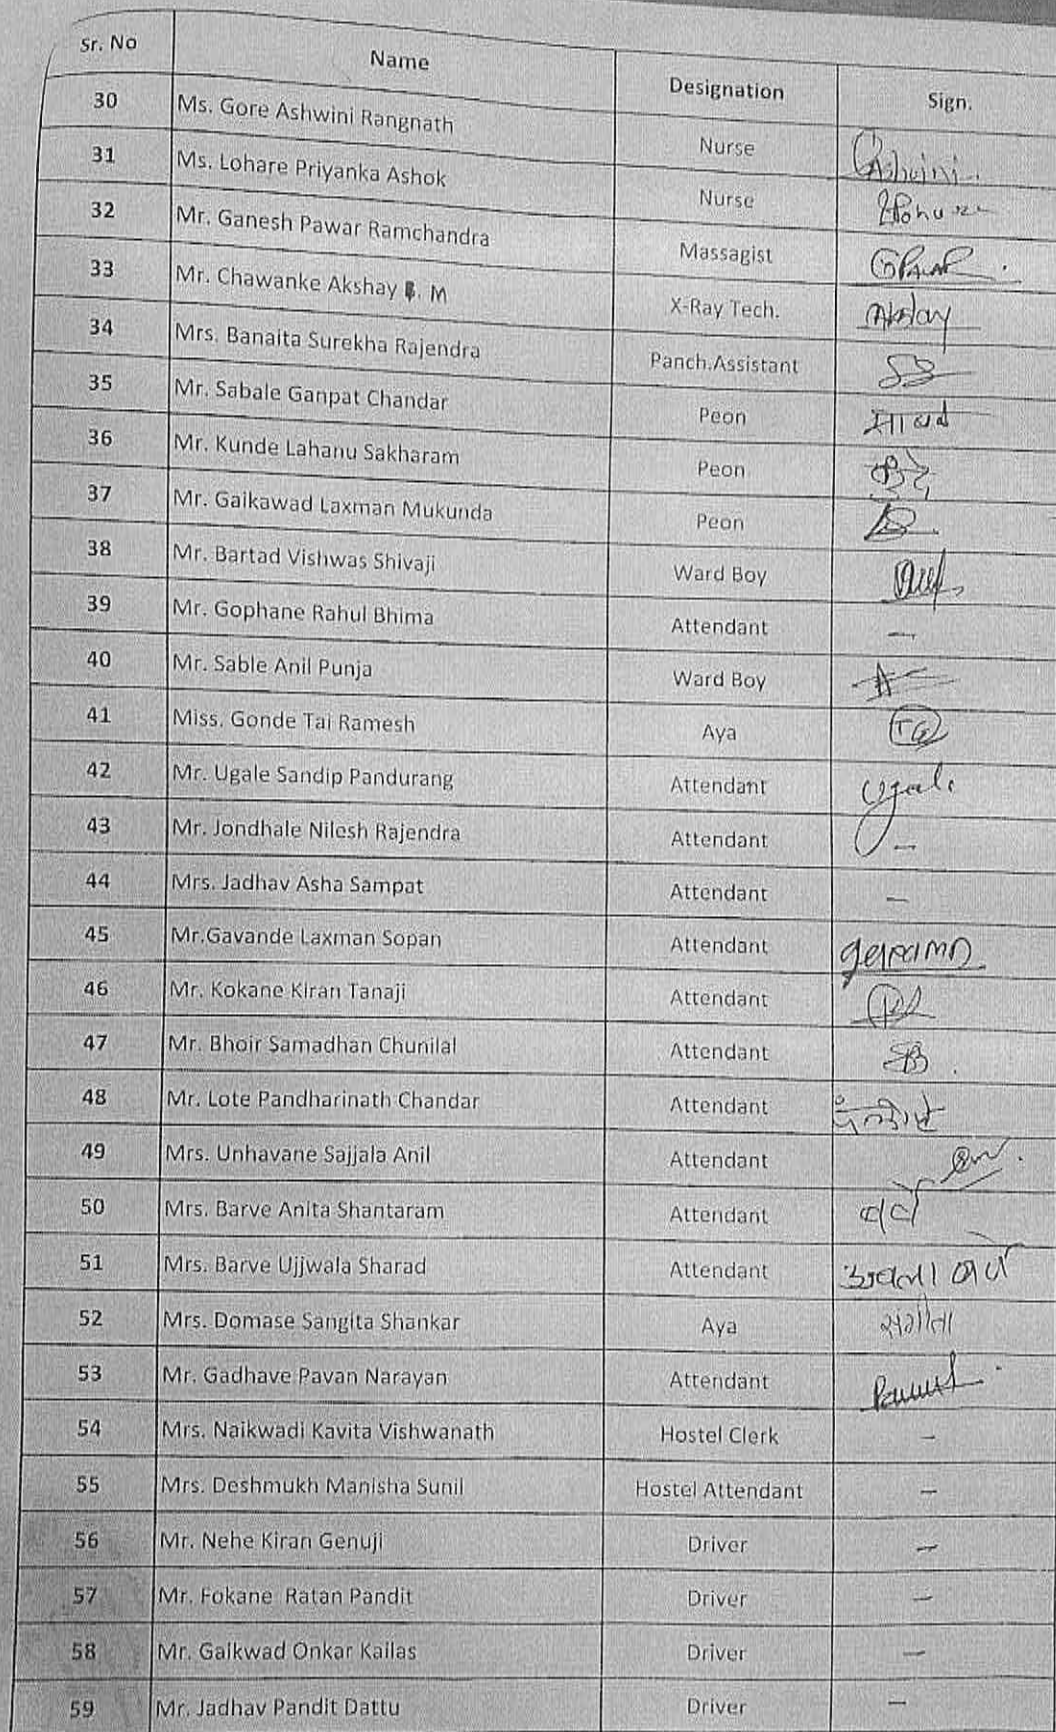 Sr. No Name Designation Sign.
30 Ms. Gore Ashwini Rangnath Nurse Ashwini.
31 Ms. Lohare Priyanka Ashok Nurse
32 Mr. Ganesh Pawar Ramchandra Massagist GPawar
33 Mr. Chawanke Akshay . M X-Ray Tech. Akshay
34 Mrs. Banaita Surekha Rajendra Panch.Assistant
35 Mr. Sabale Ganpat Chandar Peon
36 Mr. Kunde Lahanu Sakharam Peon कुंदे
37 Mr. Gaikawad Laxman Mukunda Peon
38 Mr. Bartad Vishwas Shivaji Ward Boy
39 Mr. Gophane Rahul Bhima Attendant —
40 Mr. Sable Anil Punja Ward Boy
41 Miss. Gonde Tai Ramesh Aya TG
42 Mr. Ugale Sandip Pandurang Attendant Ugale
43 Mr. Jondhale Nilesh Rajendra Attendant —
44 Mrs. Jadhav Asha Sampat Attendant —
45 Mr.Gavande Laxman Sopan Attendant
46 Mr. Kokane Kiran Tanaji Attendant
47 Mr. Bhoir Samadhan Chunilal Attendant SB.
48 Mr. Lote Pandharinath Chandar Attendant
49 Mrs. Unhavane Sajjala Anil Attendant
50 Mrs. Barve Anita Shantaram Attendant
51 Mrs. Barve Ujjwala Sharad Attendant
52 Mrs. Domase Sangita Shankar Aya संगीता
53 Mr. Gadhave Pavan Narayan Attendant
54 Mrs. Naikwadi Kavita Vishwanath Hostel Clerk —
55 Mrs. Deshmukh Manisha Sunil Hostel Attendant —
56 Mr. Nehe Kiran Genuji Driver —
57 Mr. Fokane Ratan Pandit Driver —
58 Mr. Gaikwad Onkar Kailas Driver —
59 Mr. Jadhav Pandit Dattu Driver —